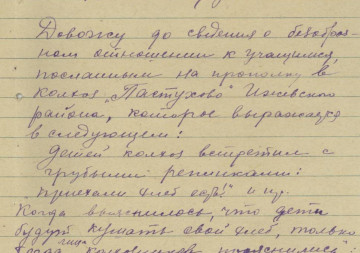 Довожу до сведения о безобраз-
ном отношении к учащимся,
посланным на прополку в
колхоз "Пастухово" Ижевского
района, которое выражается
в следующем:
Детей колхоз встретил с
грубыми репликами:
"приехали хлеб есть!" и пр.
Когда выяснилось, что дети
будут кушать свой хлеб, только
тогда лица колхозников прояснились":